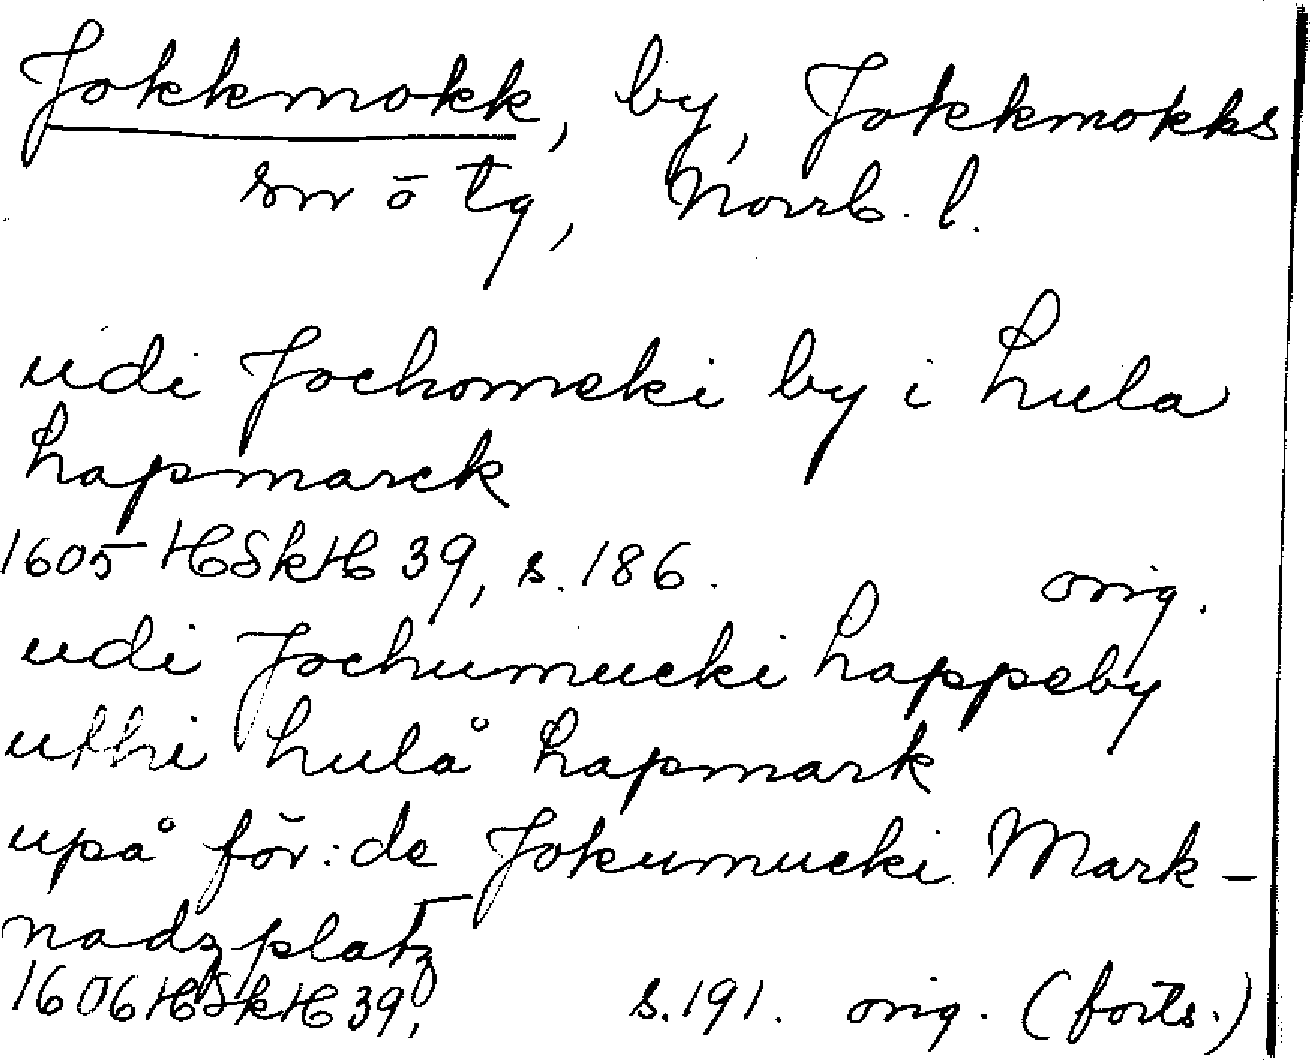 Jokkmokk, by, Jokkmokks
sn o tg, Norrb. l.
udi Jochomcki by i Lula
Lapmarck
1605 HSkH 39, s. 186. orig.
udi Jochumucki Lappeby
uthi Lulå Lapmark
upå för:de Jokumucki Mark-
nadzplatz
1606 HSkH 39, s. 191. orig. (forts.)